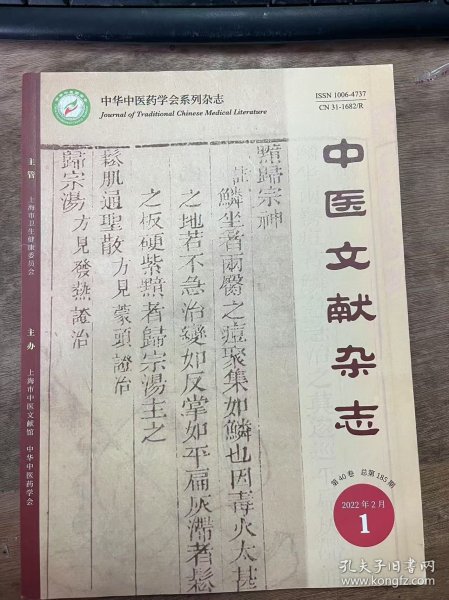 中华中医药学会系列杂志
Journal of Traditional Chinese Medical Literature
ISSN 1006-4737
CN 31-1682/R
中医文献杂志
第40卷 总第185期
2022年2月
1
黯歸宗神
註 鱗坐者兩臀之痘聚集如鱗也因毒火太甚
之地若不急治變如反掌如平扁灰滯者鬆
之板硬紫黯者歸宗湯主之
鬆肌通聖散 方見蒙頭證治
歸宗湯 方見發熱證治
主管 上海市卫生健康委员会
主办 上海市中医文献馆 中华中医药学会
孔夫子旧书网
kongfz.com